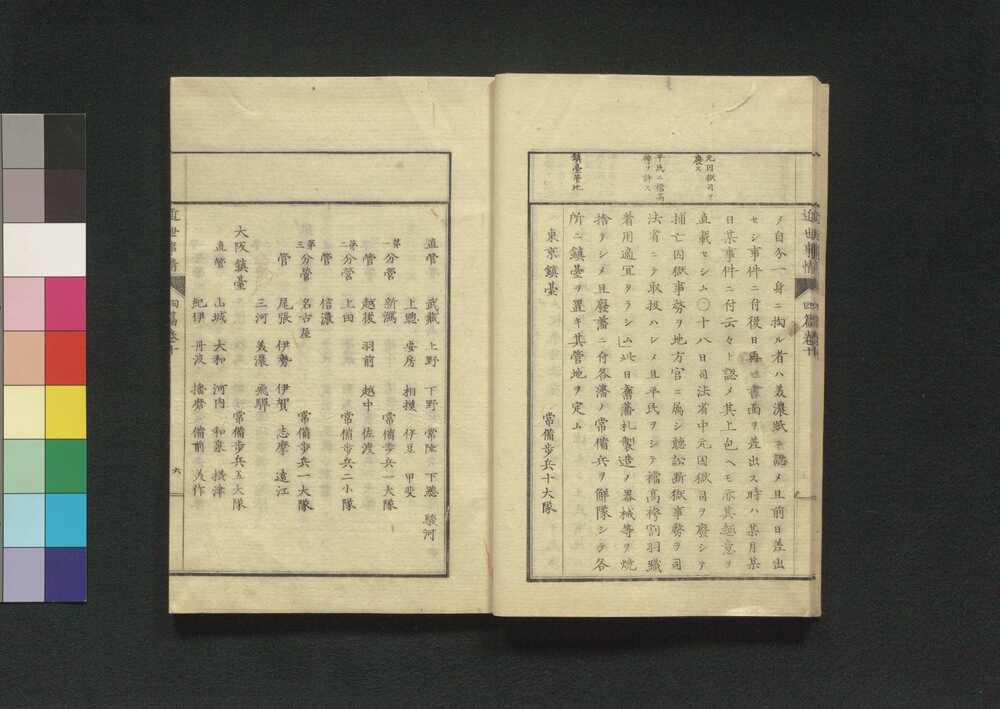 元囚獄司ヲ
廢ス
平民ニ襠高
袴ヲ許ス
鎭臺管地
メ自分一身ニ拘ル者ハ美濃紙ニ認メ且前日差出
セシ事件ニ付後日再ヒ書面ヲ差出ス時ハ某月某
日某事件ニ付云々ト認メ其上包ヘモ亦其趣意ヲ
直載セシム〇十八日司法省中元囚獄司ヲ廢シテ
捕亡囚獄事務ヲ地方官ニ屬シ聽訟斷獄事務ヲ司
法省ニテ取扱ハシメ且平民ヲシテ襠高袴割羽織
着用適宜タラシム此日舊藩札製造ノ器械等ヲ燒
捨ヲシメ且廢藩ニ付各藩ノ常備兵ヲ解隊シテ各
所ニ鎭臺ヲ置キ其管地ヲ定ム
東京鎭臺 常備歩兵十大隊
近世事情 四篇卷十
直管 武藏 上野 下野 常陸 下總 駿河
上總 安房 相摸 伊豆 甲斐
第一分營 新潟 常備歩兵一大隊
管 越後 羽前 越中 佐渡
第二分營 上田 常備歩兵二小隊
管 信濃
第三分營 名古屋 常備歩兵一大隊
管 尾張 伊勢 伊賀 志摩 遠江
三河 美濃 飛驒
大阪鎭臺 常備歩兵五大隊
直管 山城 大和 河内 和泉 攝津
紀伊 丹波 播磨 備前 美作
近世事情 四篇卷十 六